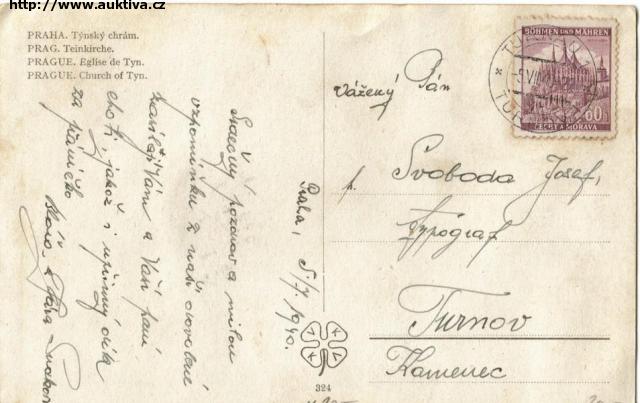 http://www.auktiva.cz
PRAHA. Týnský chrám.
PRAG. Teinkirche.
PRAGUE. Église de Tyn.
PRAGUE. Church of Tyn.
Srdečný pozdrav a milou
vzpomínku z naší dovolené
zasílají Vám a Vaší paní
choti, jakož i upřímný dík
za přáníčko
Praha, 5/7. 1940.
324
BÖHMEN UND MÄHREN
60h
ČECHY A MORAVA
Vážený Pán
p. Svoboda Josef,
typograf
Turnov
Kamenec